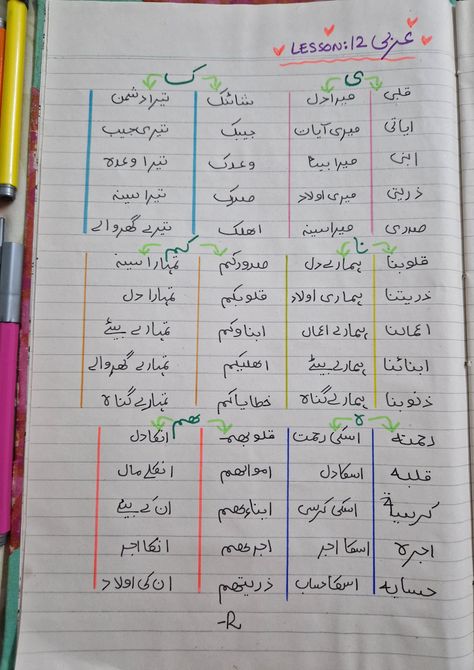 عربی LESSON:12
ی ک
قلبی میرا دل شانئک تیرا دشمن
ایاتی میری آیات جیبک تیری جیب
ابنی میرا بیٹا وعدک تیرا وعدہ
ذریتی میری اولاد صدرک تیرا سینہ
صدری میرا سینہ اھلک تیرے گھر والے
نا کم
قلوبنا ہمارے دل صدورکم تمہارا سینہ
ذریتنا ہماری اولاد قلوبکم تمہارا دل
اعمالنا ہمارے اعمال ابناوکم تمہارے بیٹے
ابنائنا ہمارے بیٹے اھلیکم تمہارے گھر والے
ذنوبنا ہمارے گناہ خطایاکم تمہارے گناہ
ہ ھم
رحمتہ اسکی رحمت قلوبھم انکا دل
قلبہ اسکا دل اموالھم انکے مال
اسکی کرسی ابناءھم ان کے بیٹے
اجرہ اسکا اجر اجرھم انکا اجر
حسابہ اسکا حساب ذریتھم ان کی اولاد
-R